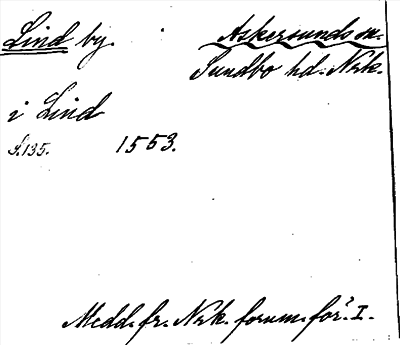 Lind by. Askersunds sn.
Sundbo hd. Nrk.
i Lind
S.135. 1553.
Medd. fr. Nrk. fornm. för. I.